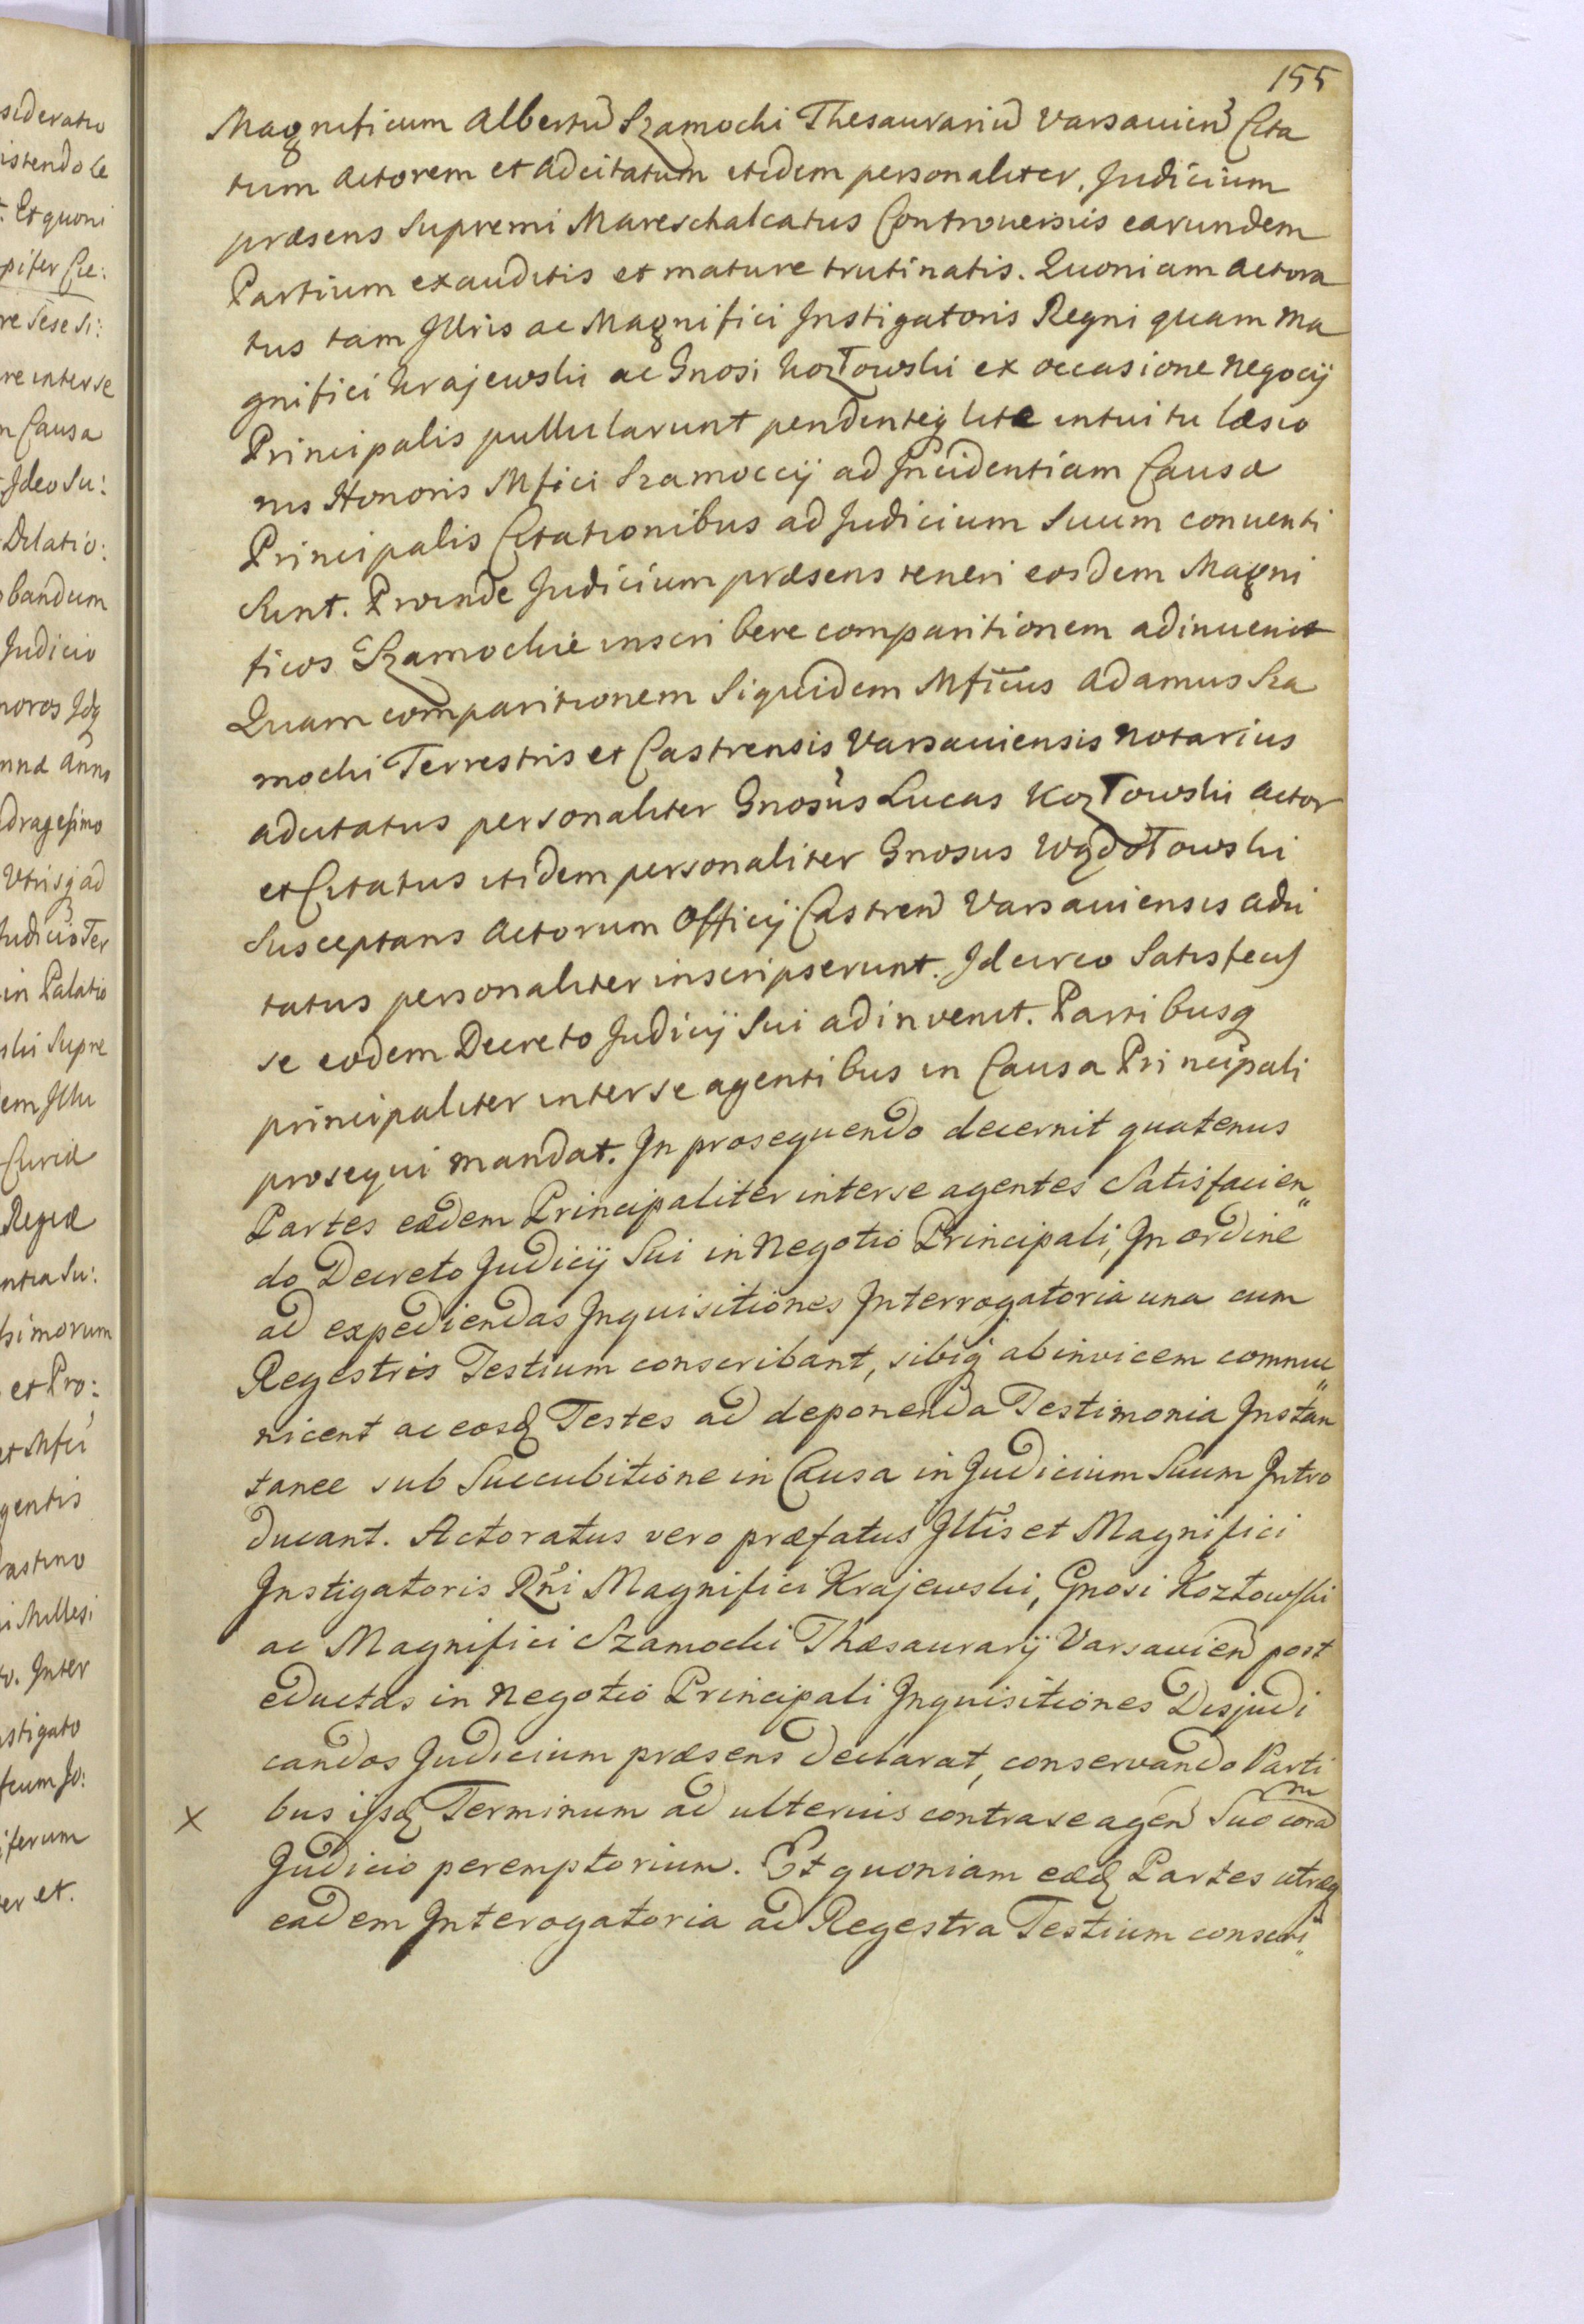 155
Magnificum Albertũ Szamocki Thesaurariũ Varsavien̄ Cita
tum Actorem et Adcitatum itidem personaliter, Judicium
præsens Supremi Mareschalcatus Controversiis earundem
Partium exauditis et mature trutinatis. Quoniam Actora
tus tam Jllris ac Magnifici Jnstigatoris Regni quam Ma
gnifici Krajewski ac Gnosi Kozłowski ex occasione Negocij
Principalis pullularunt pendenteq lite intuitu læsio
nis Honoris Mfici Szamoccij ad Jncidentiam Causæ
Principalis Citationibus ad Judicium Suum conventi
Sunt. Proinde Judicium præsens teneri eosdem Magni
ficos Szamockie inscribere comparitionem adinvenit
Quam comparitionem Siquidem Mficus Adamus Sza
mocki Terrestris et Castrensis Varsaviensis Notarius
adcitatus personaliter Gnosus Lucas Kozłowski Actor
et Citatus itidem personaliter Gnosus Wądołowski
Susceptans Actorum Officij Castren̄ Varsaviensis adci
tatus personaliter inscripserunt. Jdcirco Satisfecis
se eodem Decreto Judicij Sui adinvenit. Partibusq
principaliter inter se agentibus in Causa Principali
prosequi mandat. Jn prosequendo decernit quatenus
Partes eædem Principaliter inter se agentes Satisfacien„
do Decreto Judicij Sui in Negotio Principali, Jn ordine
ad expediendas Jnquisitiones Jnterrogatoria una cum
Regestris Testium conscribant, sibiq ab invicem commu„
nicent ac eosd Testes ad deponenda Testimonia Jnstan
tanee sub Succubitione in Causa in Judicium Suum Jntro
ducant. Actoratus vero præfatus Jllris et Magnifici
Jnstigatoris Rñi Magnifici Krajewski, Gnosi Kozłowski
ac Magnifici Szamocki Thæsaurarij Varsavien̄ post
eductas in Negotio Principali Jnquisitiones Disjudi
candos Judicium præsens declarat, conservando Parti
X bus ijsd Terminum ad ulterius contra se agen̄ Suo coram
Judicio peremptorium. Et quoniam eæd Partes utræq
eadem Jnterogatoria ad Regestra Testium conscri„